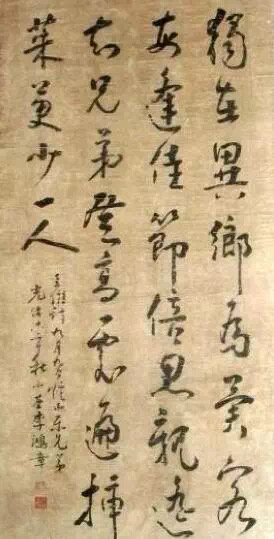 獨在異鄉為異客
每逢佳節倍思親遙
知兄弟登高處遍插
茱萸少一人
王維詩九月九日憶山東兄弟
光緒十年秋李鴻章